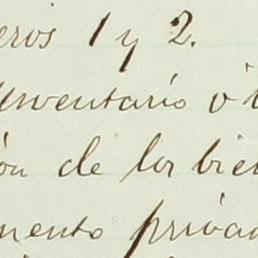 eros 1 y 2.
Inventario o i
ón de los bien
mento privad